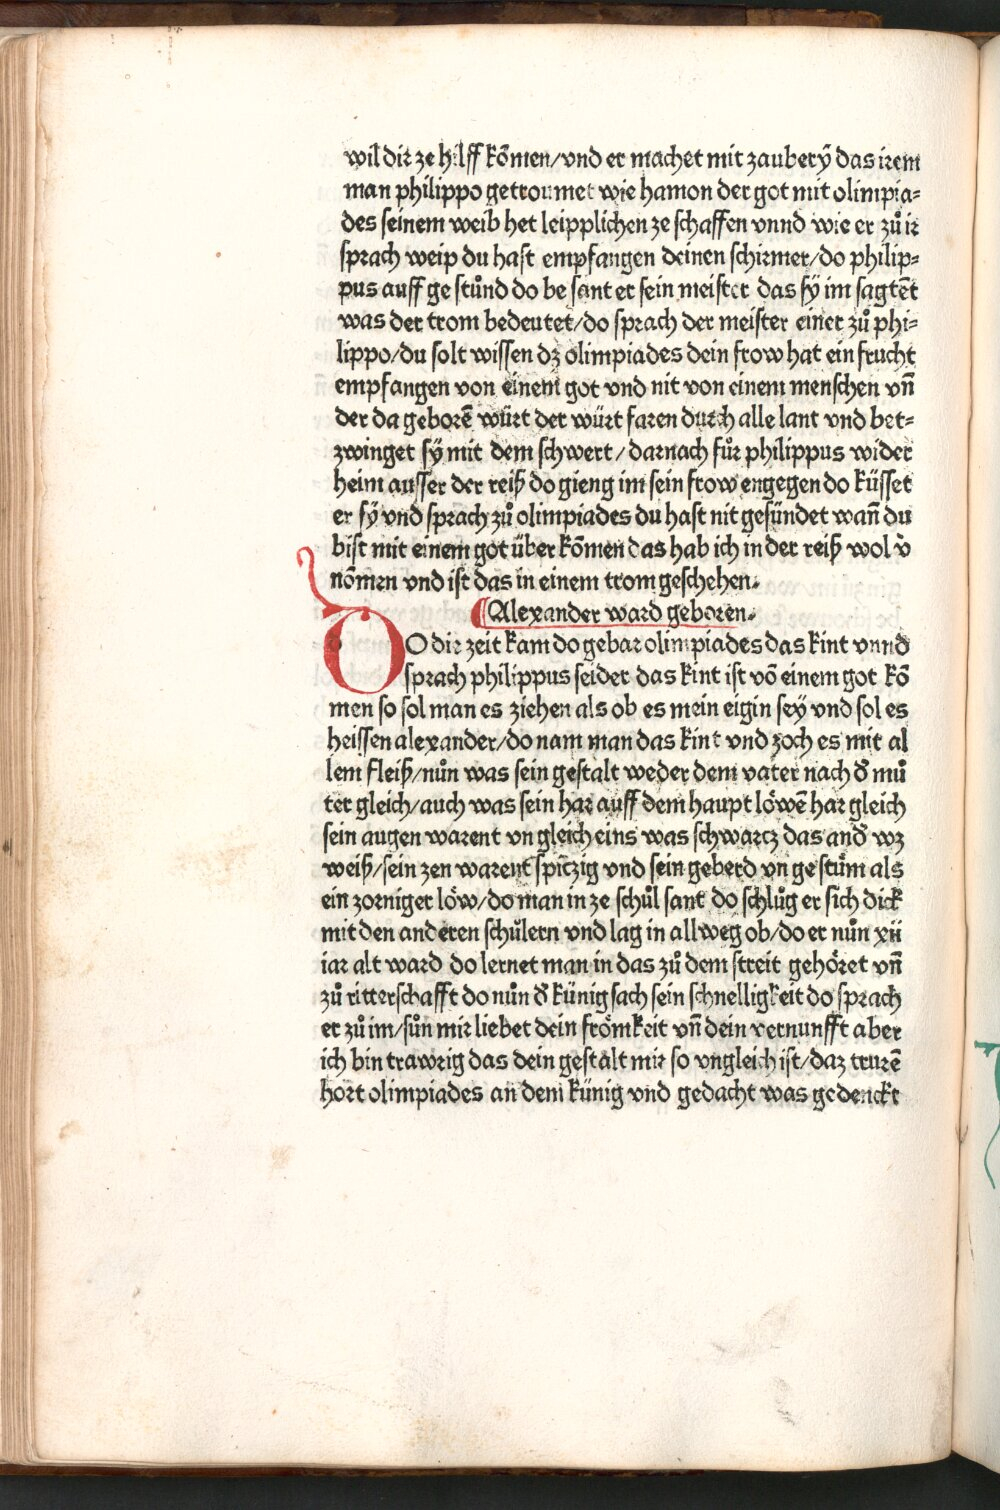 wil dir ze hilff kōmen/vnd er machet mit zauberÿ das irem
man philippo getroumet wie hamon der got mit olimpia⸗
des seinem weib het leipplichen ze schaffen vnnd wie er zů ir
sprach weip du hast empfangen deinen schirmer/do philip⸗
pus auff ge stůnd do be sant er sein meister das sÿ im sagtēt
was der trom bedeutet/do sprach der meister einer zů phi⸗
lippo/du solt wissen dz olimpiades dein frow hat ein frucht
empfangen von einem got vnd nit von einem menschen vn̄
der da geborē würt der würt faren durch alle lant vnd bet⸗
zwinget sÿ mit dem schwert/darnach fůr philippus wider
heim ausser der reiß do gieng im sein frow engegen do küsset
er sÿ vnd sprach zů olimpiades du hast nit gesündet wan̄ du
bist mit einem got über kōmen das hab ich in der reiß wol v̄
nōmen vnd ist das in einem trom geschehen.
¶Alexander ward geboren.
DO die zeit kam do gebar olimpiades das kint vnnd
sprach philippus seider das kint ist vō einem got kō
men so sol man es ziehen als ob es mein eigin seÿ vnd sol es
heissen alexander/do nam man das kint vnd zoch es mit al
lem fleiß/nůn was sein gestalt weder dem vater nach đ mů
ter gleich/auch was sein har auff dem haupt löwē har gleich
sein augen warent vn gleich eins was schwarcz das and̄ wz
weiß/sein zen warent spiczig vnd sein geberd vn ge stüm als
ein zorniger löw/do man in ze schůl sant do schlůg er sich dick
mit den anderen schůlern vnd lag in allweg ob/do er nůn xii
iar alt ward do lernet man in das zů dem streit gehöret vn̄
zů ritterschafft do nůn đ künig sach sein schnelligkeit do sprach
er zů im/sůn mir liebet dein frömkeit vn̄ dein vernunfft aber
ich bin trawrig das dein gestalt mir so vngleich ist/daz trurē
hort olimpiades an dem künig vnd gedacht was gedenckt